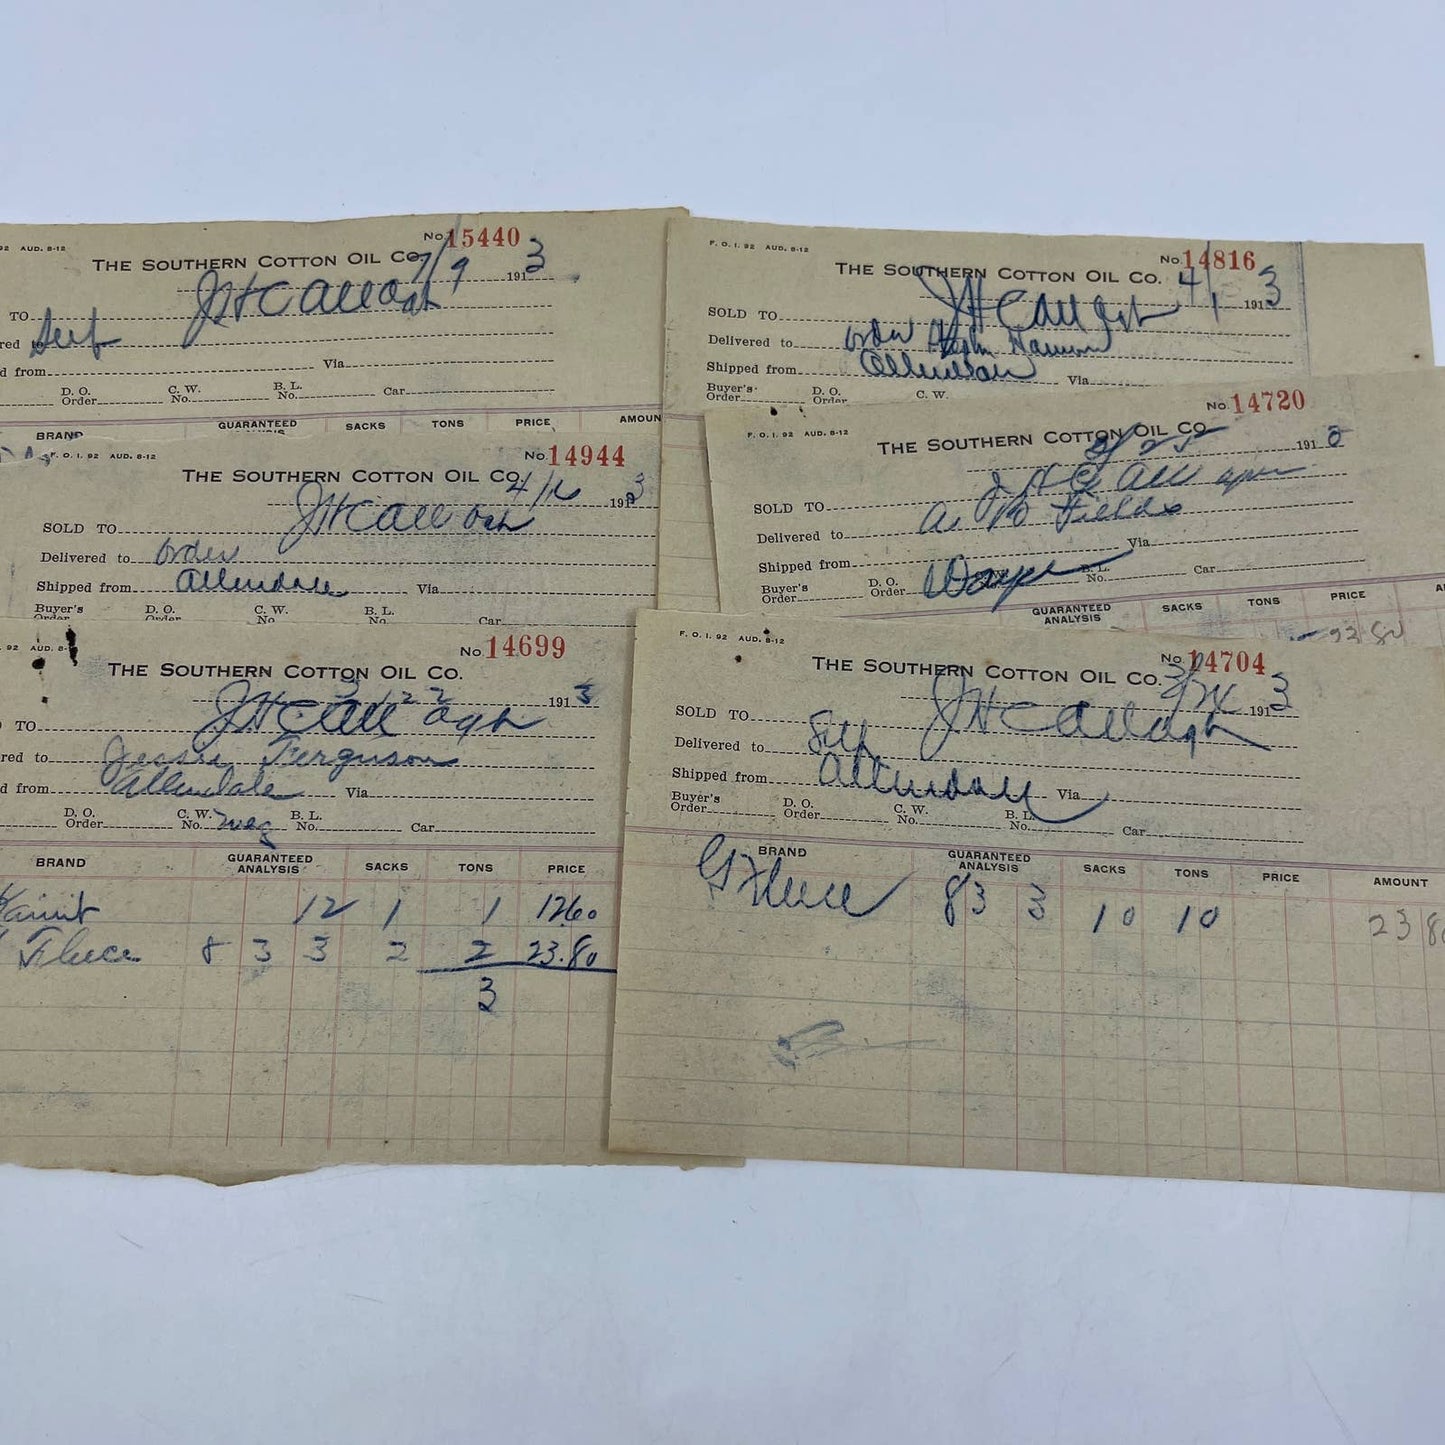 92 AUD. 8-12
No. 15440
THE SOUTHERN COTTON OIL CO.
7/9 1913
TO J H C All Agt
ed to Self
d from Via
D. O. Order C. W. No. B. L. No. Car
BRAND GUARANTEED ANALYSIS SACKS TONS PRICE AMOUN
F. O. I. 92 AUD. 8-12
No. 14816
THE SOUTHERN COTTON OIL CO.
4/1 1913
SOLD TO J H C All Agt
Delivered to order
Shipped from Allendale Via
Buyer's Order D. O. Order C. W.
F. O. I. 92 AUD. 8-12
No. 14944
THE SOUTHERN COTTON OIL CO.
4/16 1913
SOLD TO J H C All Agt
Delivered to order
Shipped from Allendale Via
Buyer's Order D. O. Order C. W. No. B. L. No. Car
F. O. I. 92 AUD. 8-12
No. 14720
THE SOUTHERN COTTON OIL CO.
3/25 191
SOLD TO J H C All
Delivered to A. B Fields
Shipped from Via
Buyer's Order D. O. Order B. L. No. Car
GUARANTEED ANALYSIS SACKS TONS PRICE A
23 80
92 AUD. 8-12
No. 14699
THE SOUTHERN COTTON OIL CO.
3/22 1913
TO J H C All Agt
red to Jessie Ferguson
d from Allendale Via
D. O. Order C. W. No. B. L. No. Car
BRAND GUARANTEED ANALYSIS SACKS TONS PRICE
Kainit 12 1 1 12.60
8 3 3 2 2 23.80
3
F. O. I. 92 AUD. 8-12
No. 14704
THE SOUTHERN COTTON OIL CO.
3/24 1913
SOLD TO J H C All Agt
Delivered to Self
Shipped from Allendale Via
Buyer's Order D. O. Order C. W. No. B. L. No. Car
BRAND GUARANTEED ANALYSIS SACKS TONS PRICE AMOUNT
8 3 3 10 10 23 80